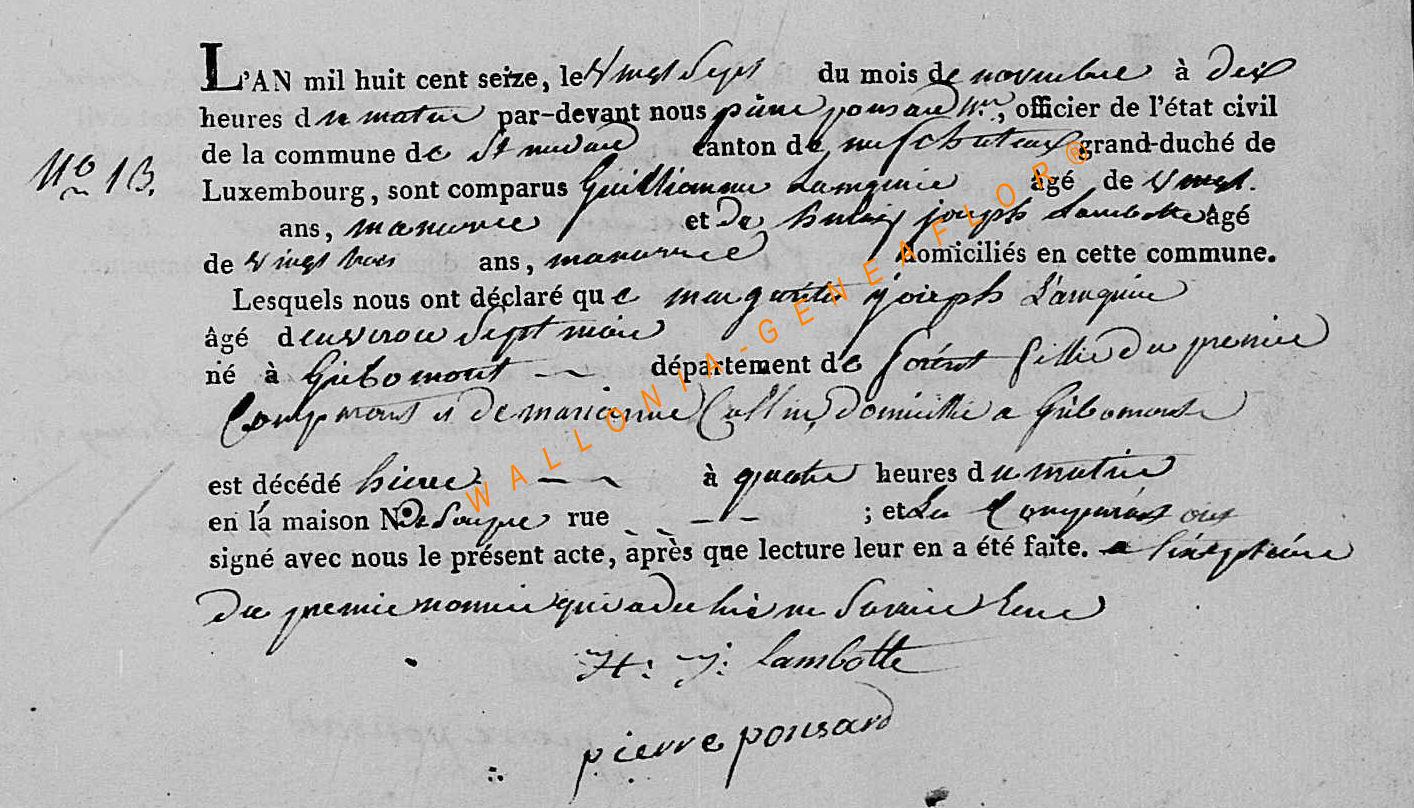 L'AN mil huit cent seize, le vingt Sept du mois de novembre à dix
heures du matin par-devant nous pierre ponsard m.re, officier de l'état civil
de la commune de St medard canton de neufchateau grand-duché de
N.o 13.
Luxembourg, sont comparus Guilliaume Lamquin âgé de vingt.
ans, manuvre et de hubert joseph Lambotte âgé
de vingt trois ans, manuvre domiciliés en cette commune.
Lesquels nous ont déclaré que margarite joseph Lamquin
âgé denviron Sept mois
né à Gribomont département de forêt fillie du premier
Comparant et de marianne Collin, domicillié a Gribomont
est décédé hiere à quatre heures du matin
en la maison N.o rue ; et Les Comparant ont
signé avec nous le présent acte, après que lecture leur en a été faite. a l'exeption
du premie nommé qui a ne Savoire
H: J: Lambotte
pierre ponsard
WALLONIA-GENEAFLOR®